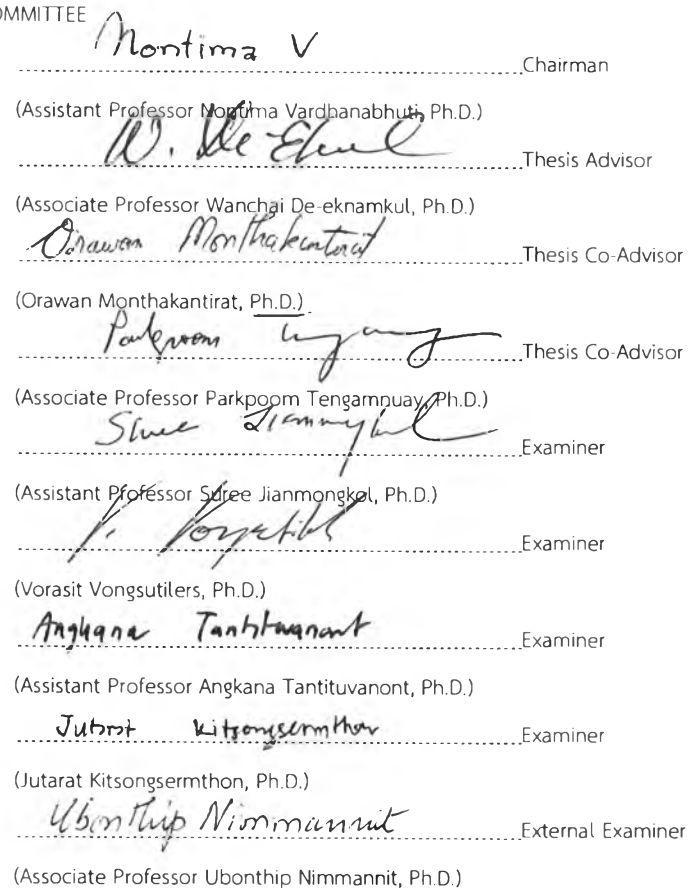 OMMITTEE
Nontima V
Chairman
(Assistant Professor Nontima Vardhanabhuti, Ph.D.)
W. De-Eknul
Thesis Advisor
(Associate Professor Wanchai De-eknamkul, Ph.D.)
Orawan Monthakantirat
Thesis Co-Advisor
(Orawan Monthakantirat, Ph.D.)
Parkpoom
Thesis Co-Advisor
(Associate Professor Parkpoom Tengamnuay, Ph.D.)
Suree Jianmongkol
Examiner
(Assistant Professor Suree Jianmongkol, Ph.D.)
Examiner
(Vorasit Vongsutilers, Ph.D.)
Angkana Tantituvanont
Examiner
(Assistant Professor Angkana Tantituvanont, Ph.D.)
Jutarat Kitsongsermthon
Examiner
(Jutarat Kitsongsermthon, Ph.D.)
Ubonthip Nimmannit
External Examiner
(Associate Professor Ubonthip Nimmannit, Ph.D.)